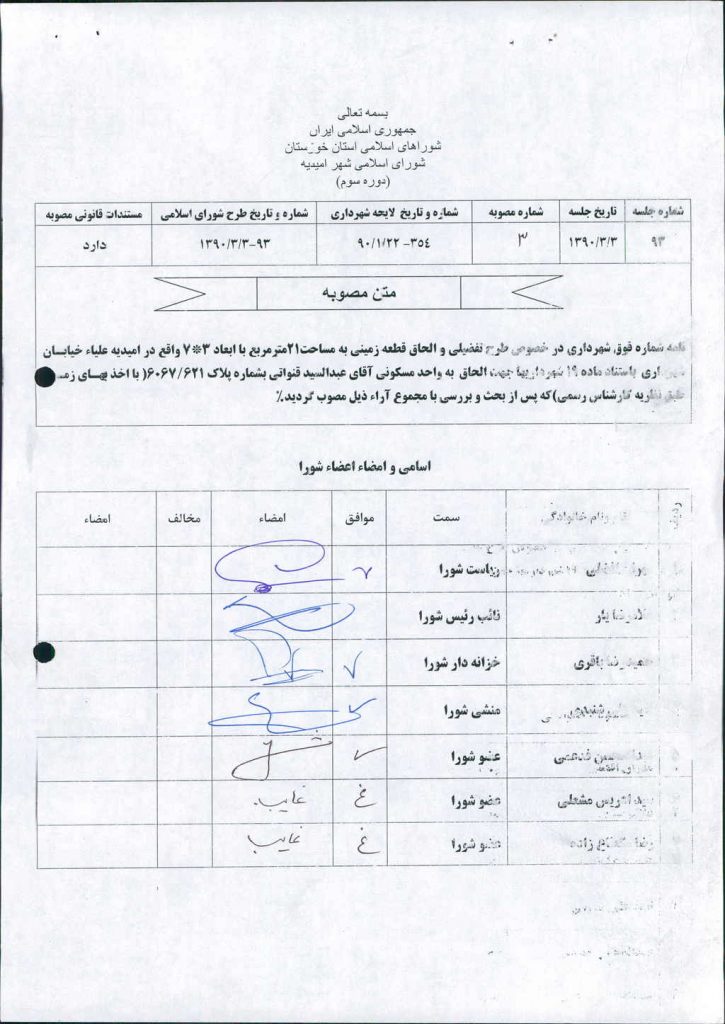 بسمه تعالی
جمهوری اسلامی ایران
شوراهای اسلامی استان خوزستان
شورای اسلامی شهر امیدیه
(دوره سوم)
شماره جلسه تاریخ جلسه شماره مصوبه شماره و تاریخ لایحه شهرداری شماره و تاریخ طرح شورای اسلامی مستندات قانونی مصوبه
۹۳ ۱۳۹۰/۳/۳ ۳ ۳۵۴- ۹۰/۱/۲۲ ۱۳۹۰/۳/۳-۹۳ دارد
متن مصوبه
نامه شماره فوق شهرداری در خصوص طرح تفضیلی و الحاق قطعه زمینی به مساحت۲۱مترمربع با ابعاد ۳*۷ واقع در امیدیه علیاء خیابان
باستناد ماده ۱۹ شهرداریها جهت الحاق به واحد مسکونی آقای عبدالسید قنواتی بشماره پلاک ۶۰۶۷/۶۲۱( با اخذ بهای
طبق نظریه کارشناس رسمی)که پس از بحث و بررسی با مجموع آراء ذیل مصوب گردید.٪
اسامی و امضاء اعضاء شورا
ردیف نام ونام خانوادگی سمت موافق امضاء مخالف امضاء
ریاست شورا ✓
غلامرضا یار نائب رئیس شورا
حمیدرضا باقری خزانه دار شورا ✓
منشی شورا ✓
عضو شورا ✓
سید ادریس مشعلی عضو شورا غ غایب
رضا زاده عضو شورا غ غایب